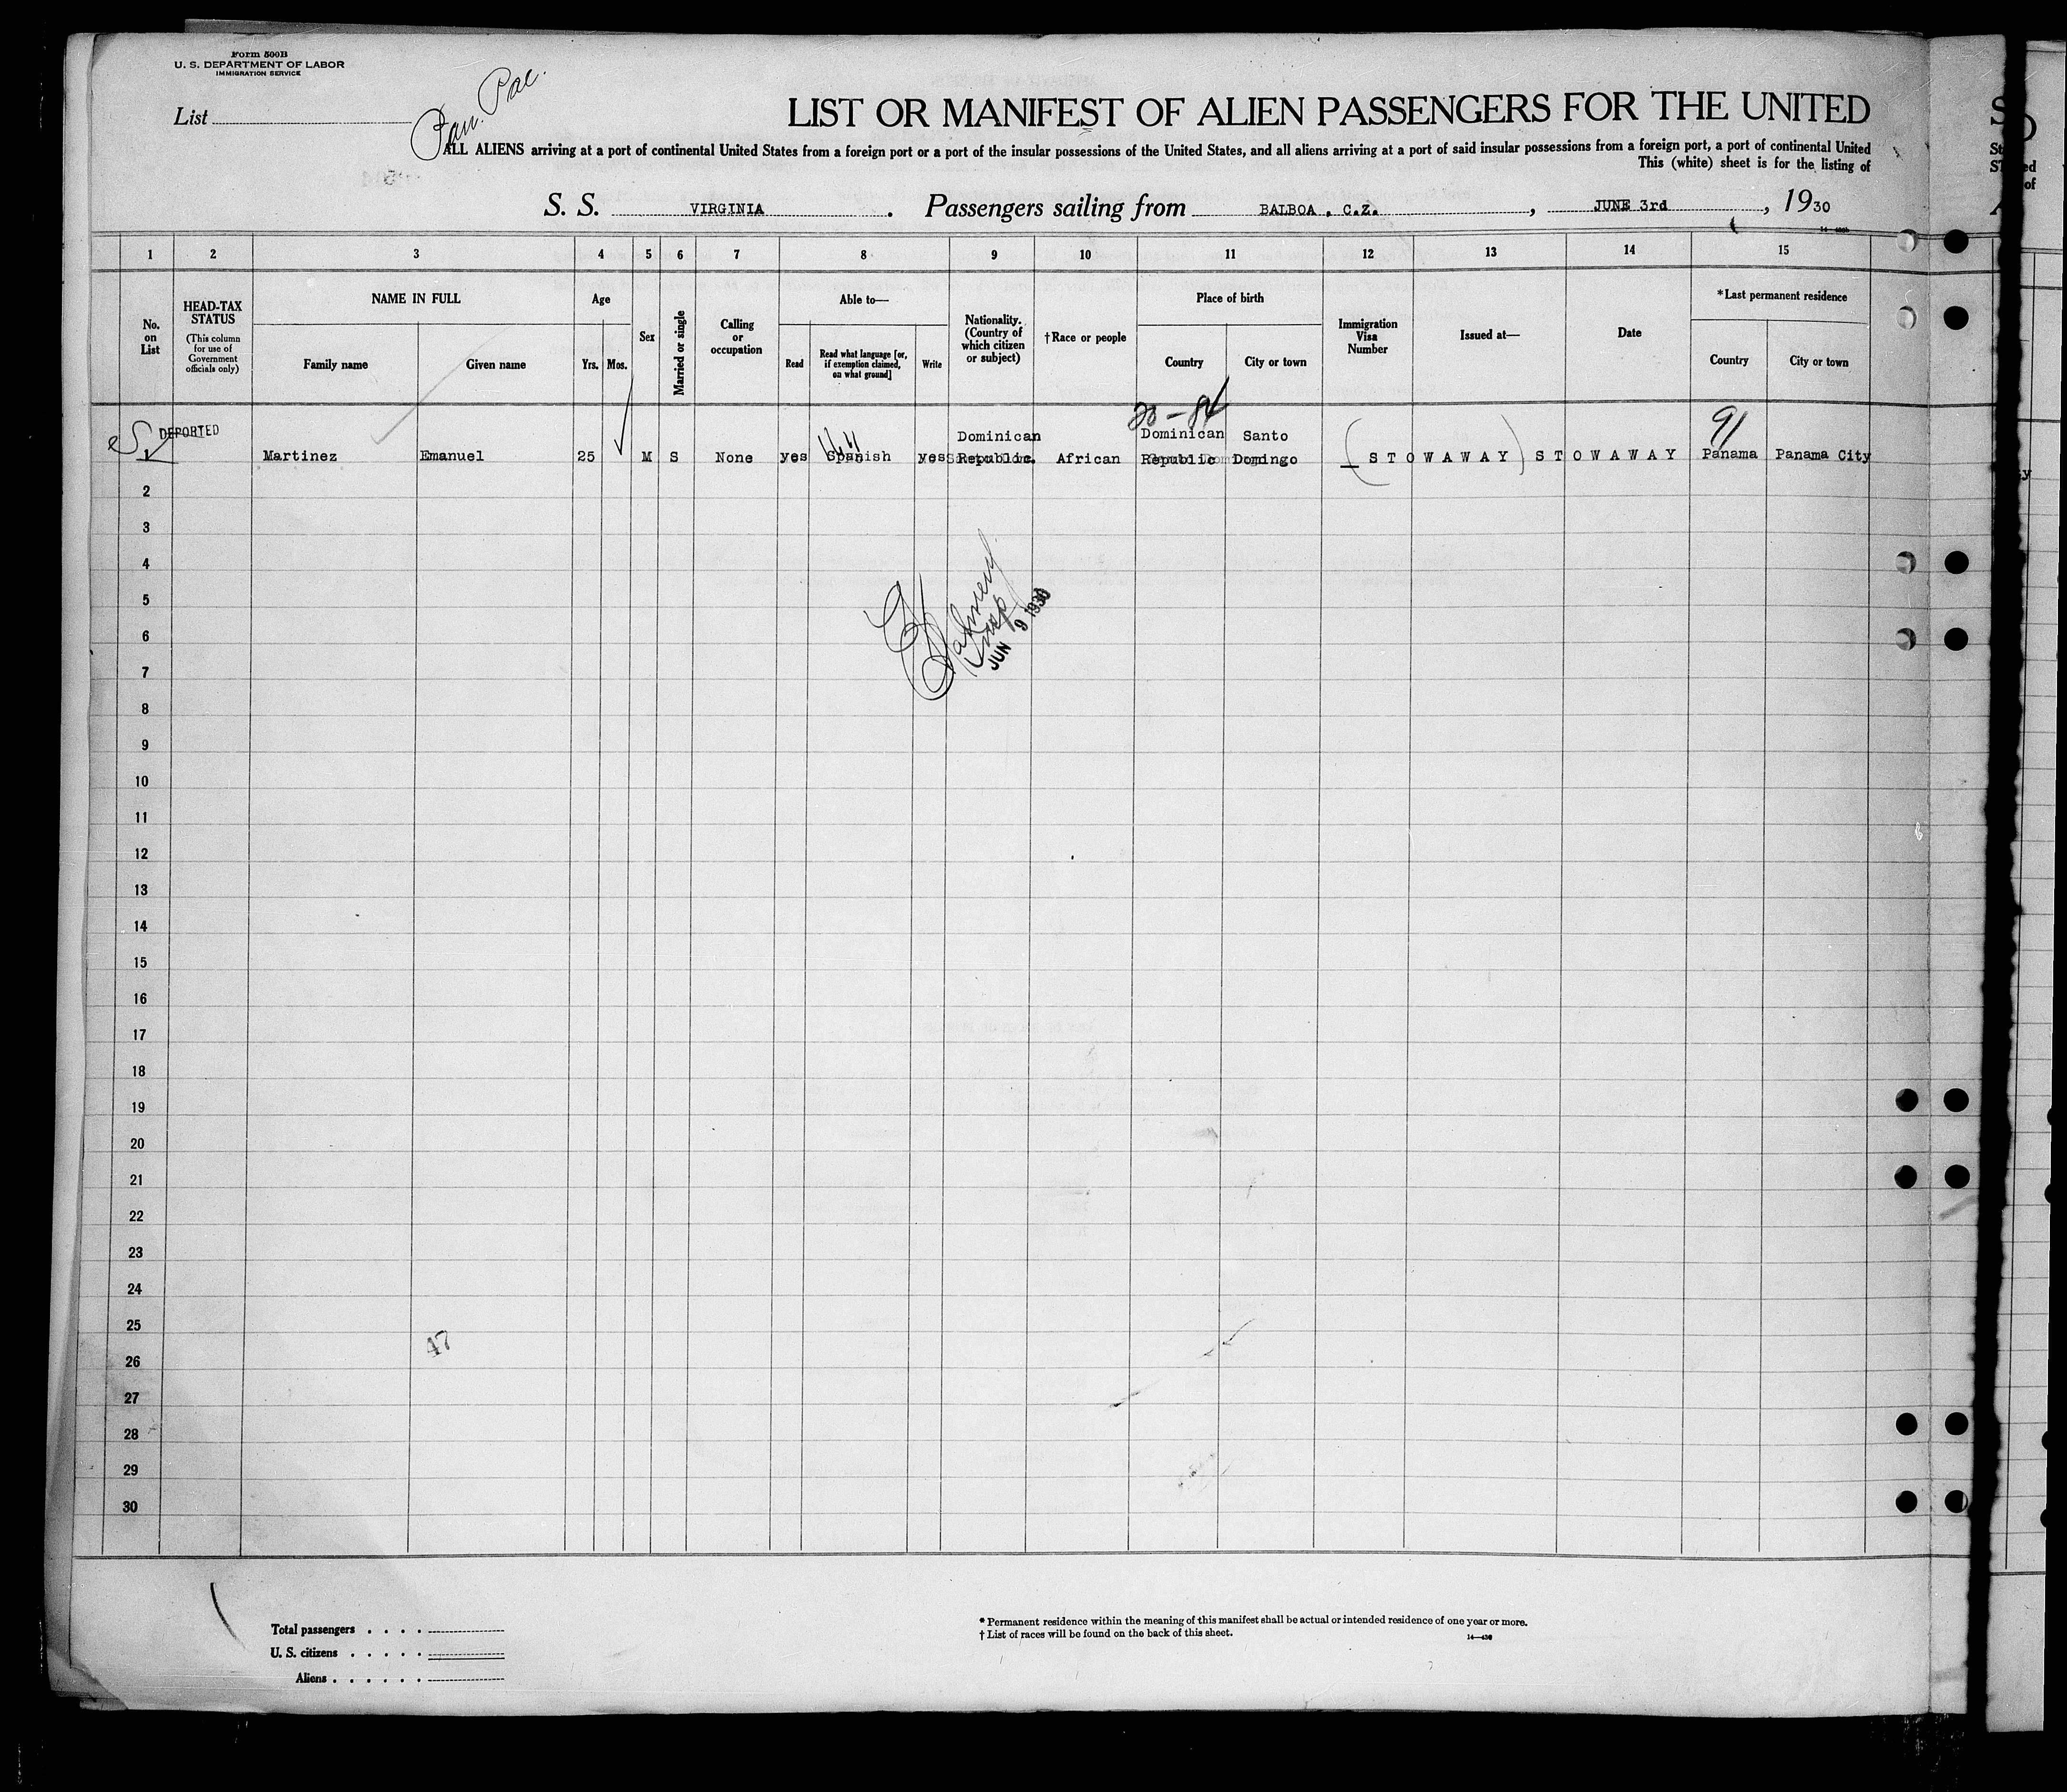 Form 500B
U. S. DEPARTMENT OF LABOR
IMMIGRATION SERVICE
Pan. Pac.
List
LIST OR MANIFEST OF ALIEN PASSENGERS FOR THE UNITED
ALL ALIENS arriving at a port of continental United States from a foreign port or a port of the insular possessions of the United States, and all aliens arriving at a port of said insular possessions from a foreign port, a port of continental United
This (white) sheet is for the listing of
S. S. VIRGINIA . Passengers sailing from BALBOA , C.Z. , JUNE 3rd , 1930
1 2 3 4 5 6 7 8 9 10 11 12 13 14 15
No. on List
HEAD-TAX STATUS
(This column for use of Government officials only)
NAME IN FULL
Family name Given name
Age
Yrs. Mos.
Sex
Married or single
Calling or occupation
Able to—
Read
Read what language [or, if exemption claimed, on what ground]
Write
Nationality. (Country of which citizen or subject)
†Race or people
Place of birth
Country City or town
Immigration Visa Number
Issued at—
Date
*Last permanent residence
Country City or town
20-84 91
DEPORTED
Martinez Emanuel 25 M S None yes Spanish yes Dominican Republic African Dominican Republic Santo Domingo (STOWAWAY) STOWAWAY Panama Panama City
2
3
4
5
6
7
8
9
10
11
12
13
14
15
16
17
18
19
20
21
22
23
24
25
26
27
28
29
30
JUN 9 1930
47
Total passengers . . . .
U. S. citizens . . . . .
Aliens . . . . . .
* Permanent residence within the meaning of this manifest shall be actual or intended residence of one year or more.
† List of races will be found on the back of this sheet.